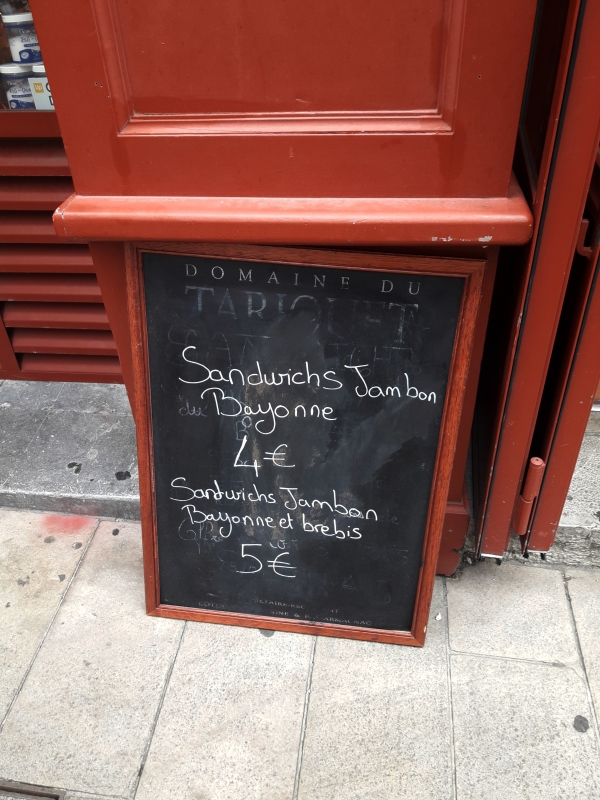 DOMAINE DU
TARIQUET
Sandwichs Jambon
Bayonne
4€
Sandwichs Jambon
Bayonne et brebis
5€